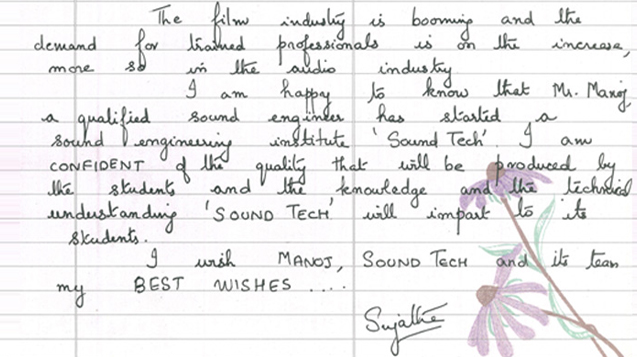 The film industry is booming and the
demand for trained professionals is on the increase,
more so in the audio industry
I am happy to know that Mr. Manoj,
a qualified sound engineer has started a
sound engineering institute 'Sound Tech'. I am
CONFIDENT of the quality that will be produced by
the students and the knowledge and the technical
understanding 'SOUND TECH' will impart to its
students.
I wish MANOJ, SOUND TECH and its team
my BEST WISHES ....
Sujatha